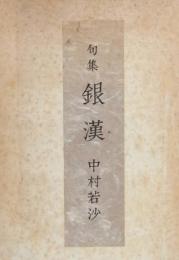 句集
銀漢
中村若沙